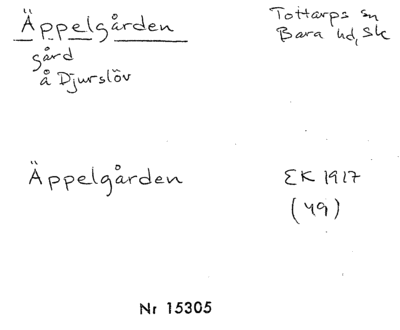 Äppelgården
gård
å Djurslöv
Tottarps sn
Bara hd, Sk
Äppelgården
EK 1917
(49)
Nr 15305